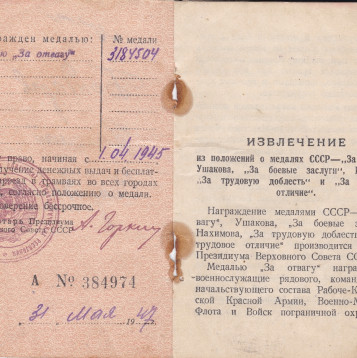 ражден медалью:
ю „За отвагу"
№ медали
3184504
право, начиная с 1 04 1945
лучение денежных выдач и бесплат-
проезд в трамваях во всех городах
Р, согласно положению о медали.
оверение бессрочное.
етарь Президиума
овного Совета СССР
А. Горкин
А № 384974
31 Мая 1947
ИЗВЛЕЧЕНИЕ
из положений о медалях СССР—„За
Ушакова, „За боевые заслуги",
„За трудовую доблесть" и „За
отличие"
Награждение медалями СССР—
вагу", Ушакова, „За боевые з
Нахимова, „За трудовую доблест
трудовое отличие" производится
Президиума Верховного Совета СС
Медалью „За отвагу" награ
военнослужащие рядового, команд
начальствующего состава Рабоче-К
ской Красной Армии, Военно-М
Флота и Войск пограничной охр